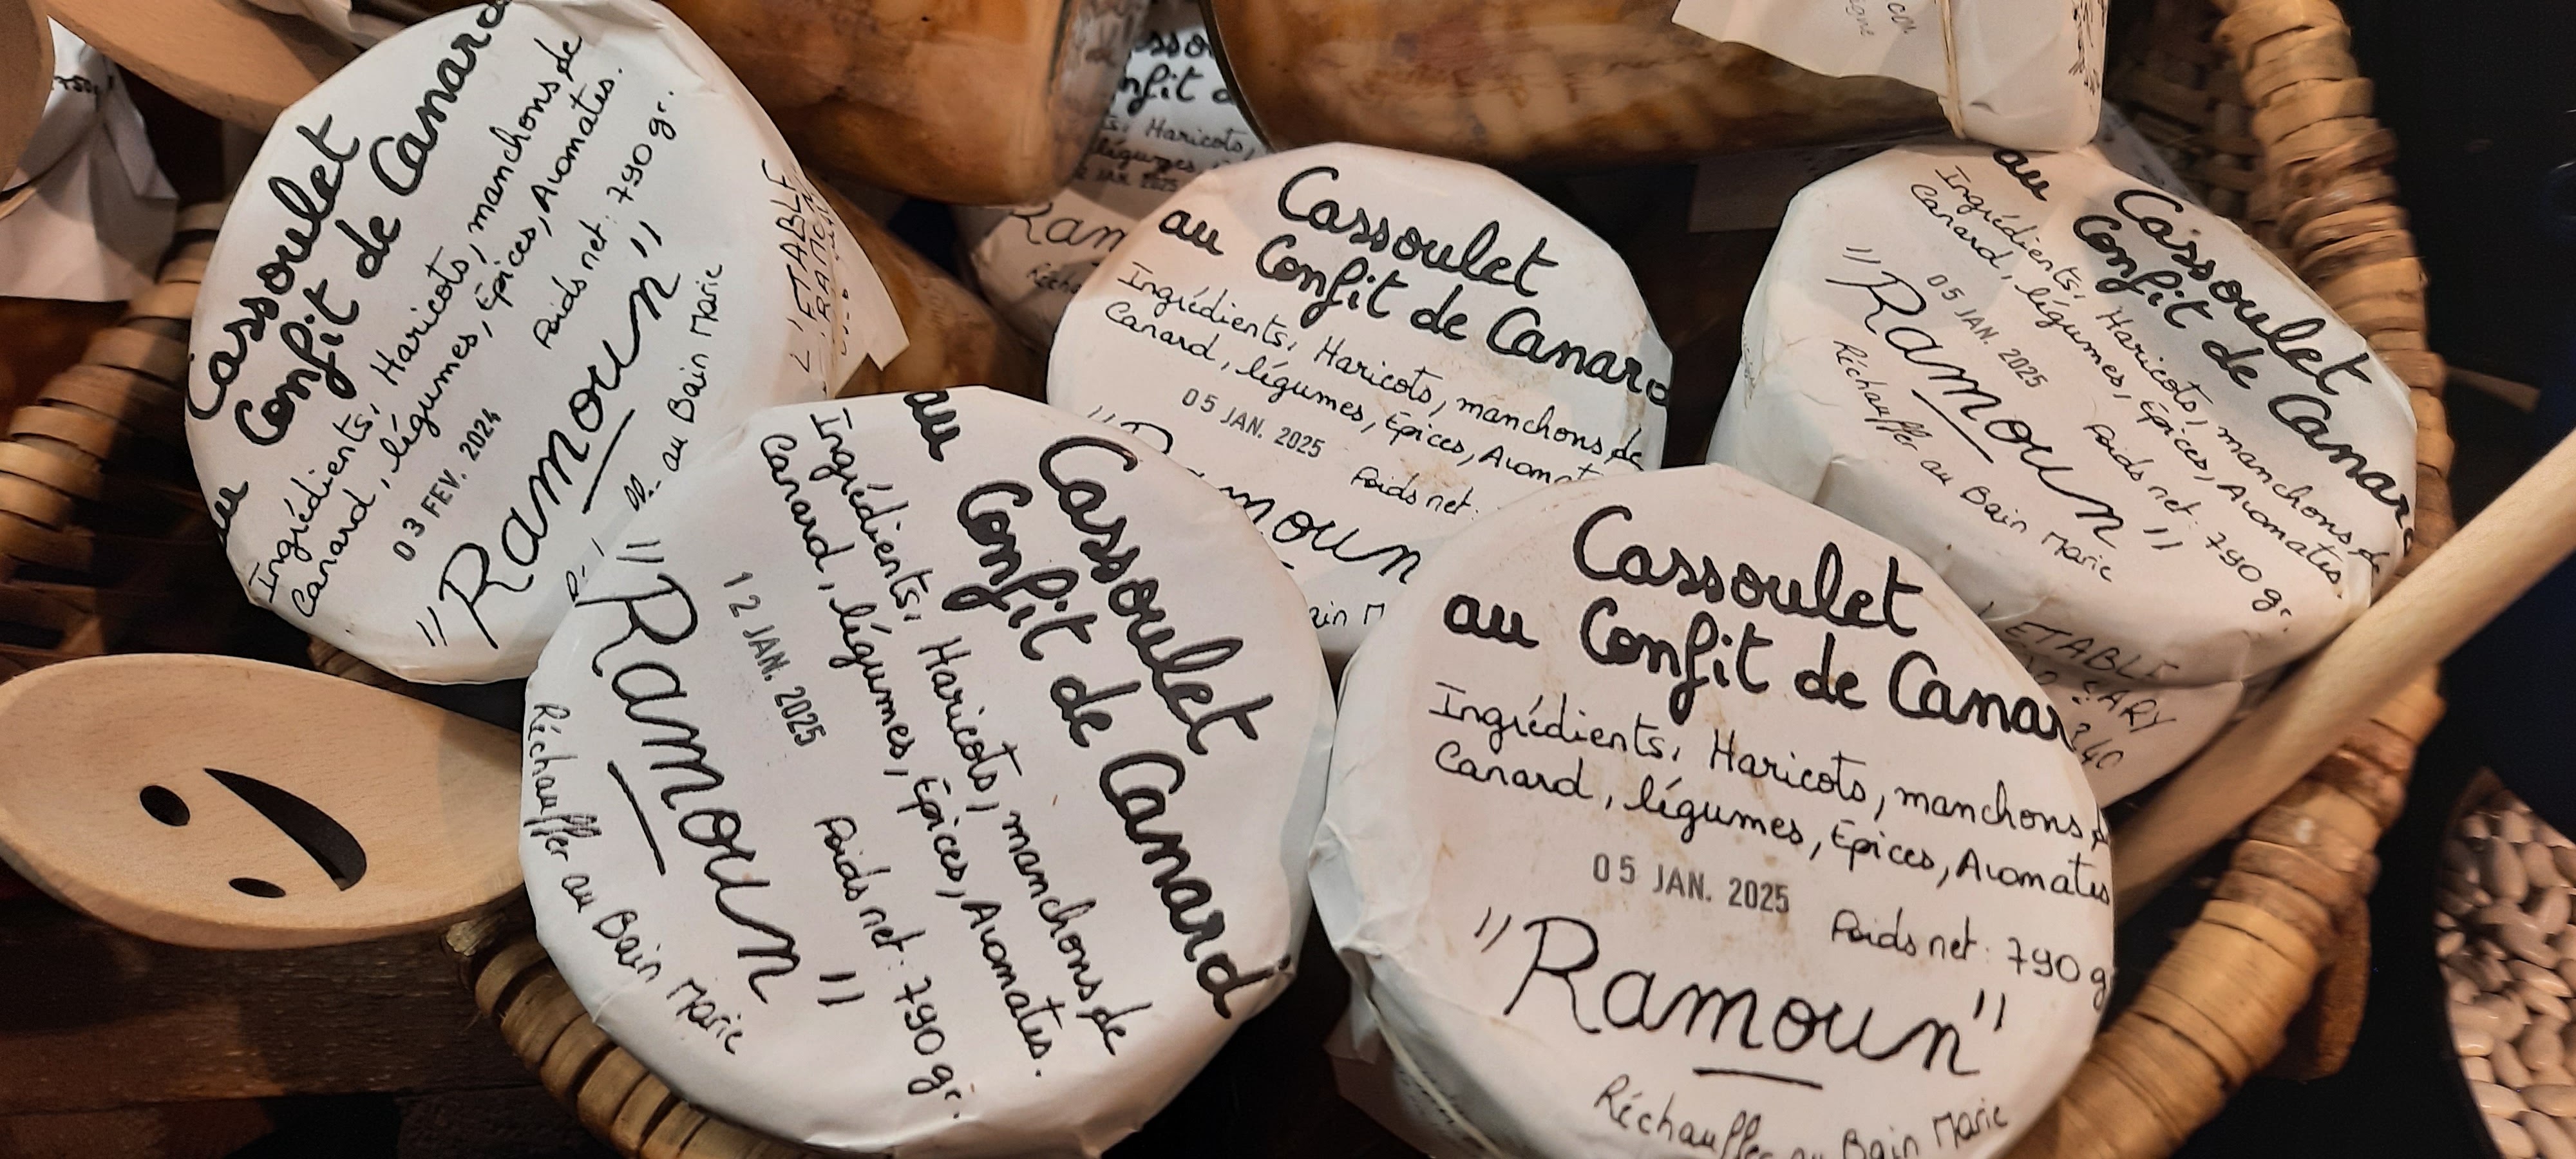 Cassoulet
au Confit de Canard
Ingrédients: Haricots, manchons de
Canard, légumes, Epices, Aromates.
03 FEV. 2024
Poids net: 790 gr.
"Ramoun"
au Bain Marie
L'ETABLE
Haricots,
légumes,
JAN. 2025
Cassoulet
au Confit de Canard
Ingrédients: Haricots, manchons de
Canard, légumes, Epices, Aromat
05 JAN. 2025
Poids net:
Cassoulet
au Confit de Canard
Ingrédients: Haricots, manchons de
Canard, légumes, Epices, Aromates.
05 JAN. 2025
Poids net: 790 gr.
"Ramoun"
Réchauffer au Bain Marie
ETABLE
Cassoulet
au Confit de Canard
Ingrédients: Haricots, manchons de
Canard, légumes, Epices, Aromates.
12 JAN. 2025
Poids net: 790 gr.
"Ramoun"
Réchauffer au Bain Marie
Cassoulet
au Confit de Canar
Ingrédients: Haricots, manchons d
Canard, légumes, Epices, Aromates
05 JAN. 2025
Poids net: 790 g
"Ramoun"
Réchauffer au Bain Marie